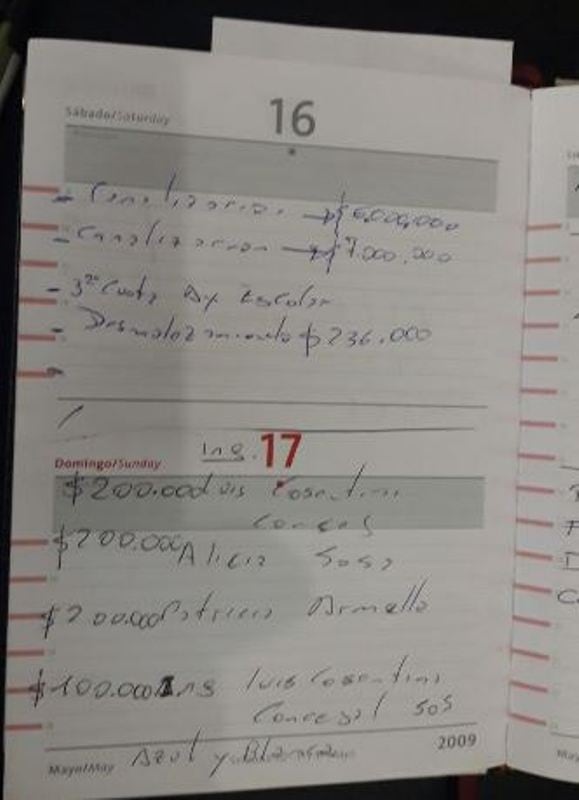 Sábado/Saturday
16
- Canalizacion → $ 6,000,000
- Canalizacion → $ 7.000.000
- 3ra Cuota Ay Escolar
- Desmalezamiento $ 236.000
Ing. 17
Domingo/Sunday
$200.000 Luis Cosentino
Concejal
$200.000 Alicia Sosa
$200.000 Patricia Armella
$100.000 Ing Luis Cosentino
Concejal SOS
Azul y
Mayo/May
2009